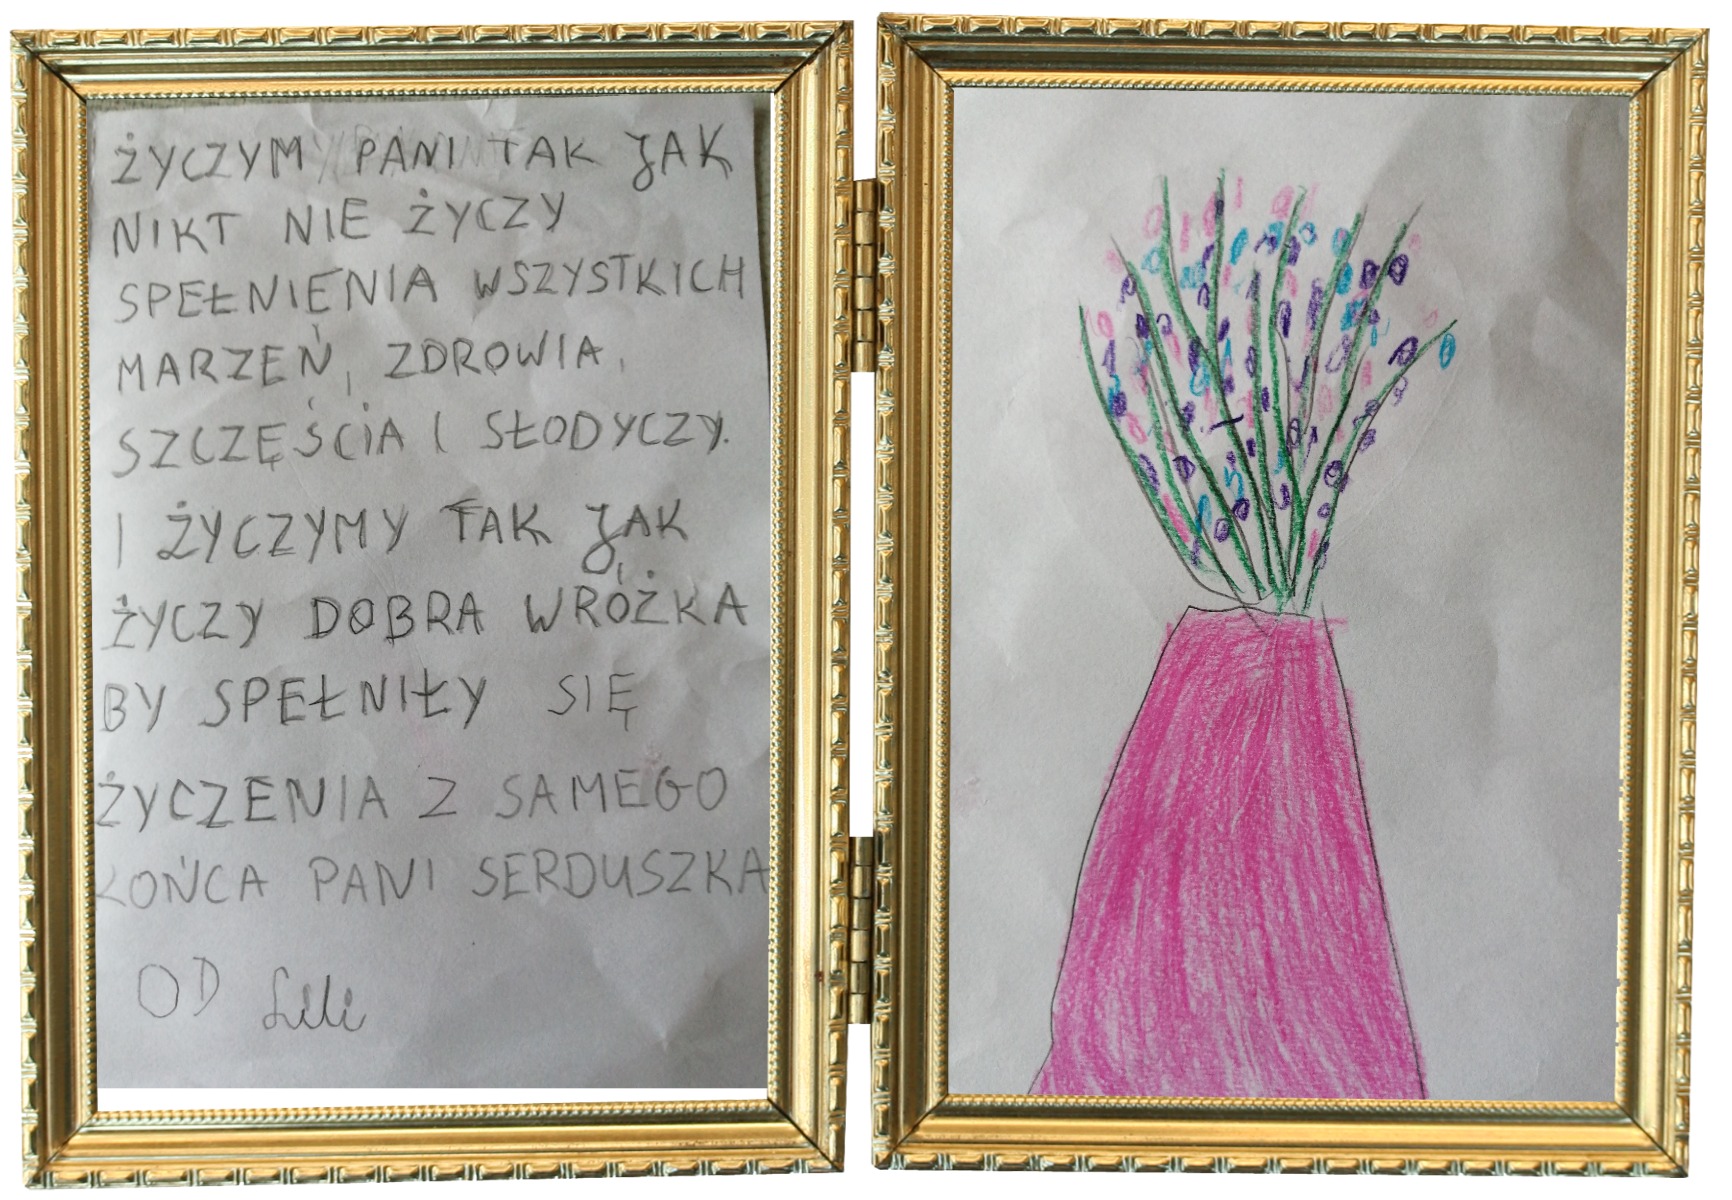 ŻYCZYMY PANI TAK JAK
NIKT NIE ŻYCZY
SPEŁNIENIA WSZYSTKICH
MARZEŃ, ZDROWIA,
SZCZĘŚCIA I SŁODYCZY.
I ŻYCZYMY TAK JAK
ŻYCZY DOBRA WRÓŻKA
BY SPEŁNIŁY SIĘ
ŻYCZENIA Z SAMEGO
KOŃCA PANI SERDUSZKA
OD Lili